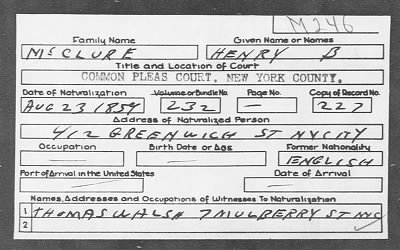 M246
Family Name Given Name or Names
McCLURE HENRY B
Title and Location of Court
COMMON PLEAS COURT, NEW YORK COUNTY.
Date of Naturalization Volume or Bundle No. Page No. Copy of Record No.
AUG 23 1854 232 — 227
Address of Naturalized Person
412 GREENWICH ST NYCITY
Occupation Birth Date or Age Former Nationality
— — ENGLISH
Port of Arrival in the United States Date of Arrival
— —
Names, Addresses and Occupations of Witnesses To Naturalization
1 THOMAS WALSH 7 MULBERRY ST NYC
2